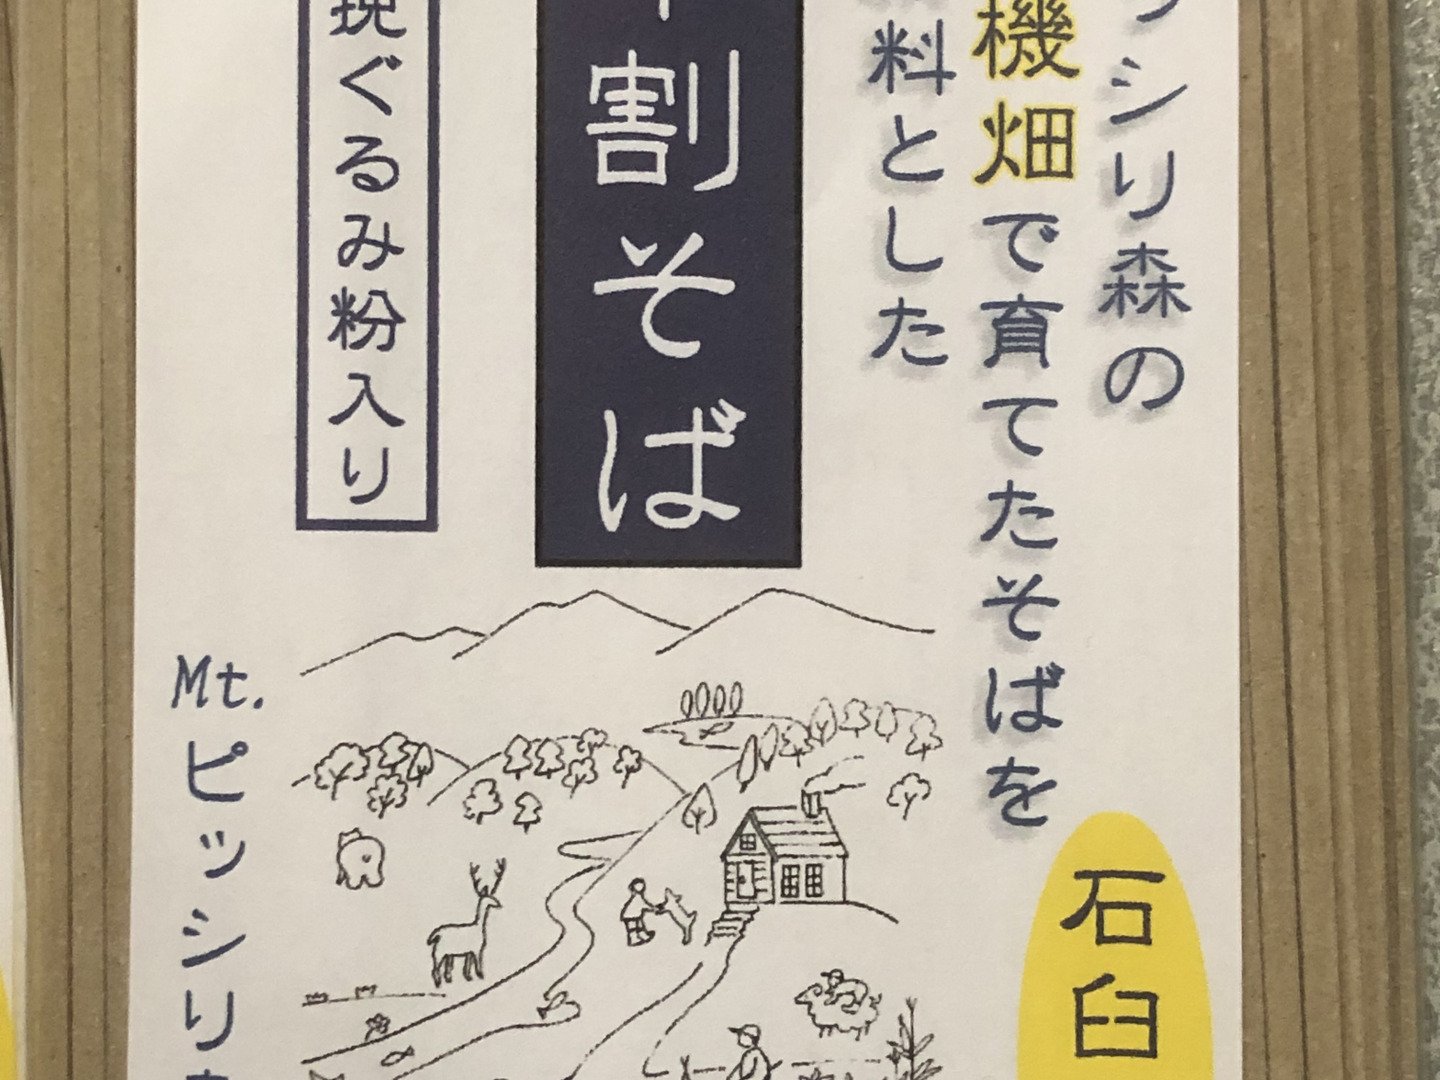 シリ森の
機畑で育てたそばを
料とした
割そば
挽ぐるみ粉入り
Mt.ピッシリ
石臼